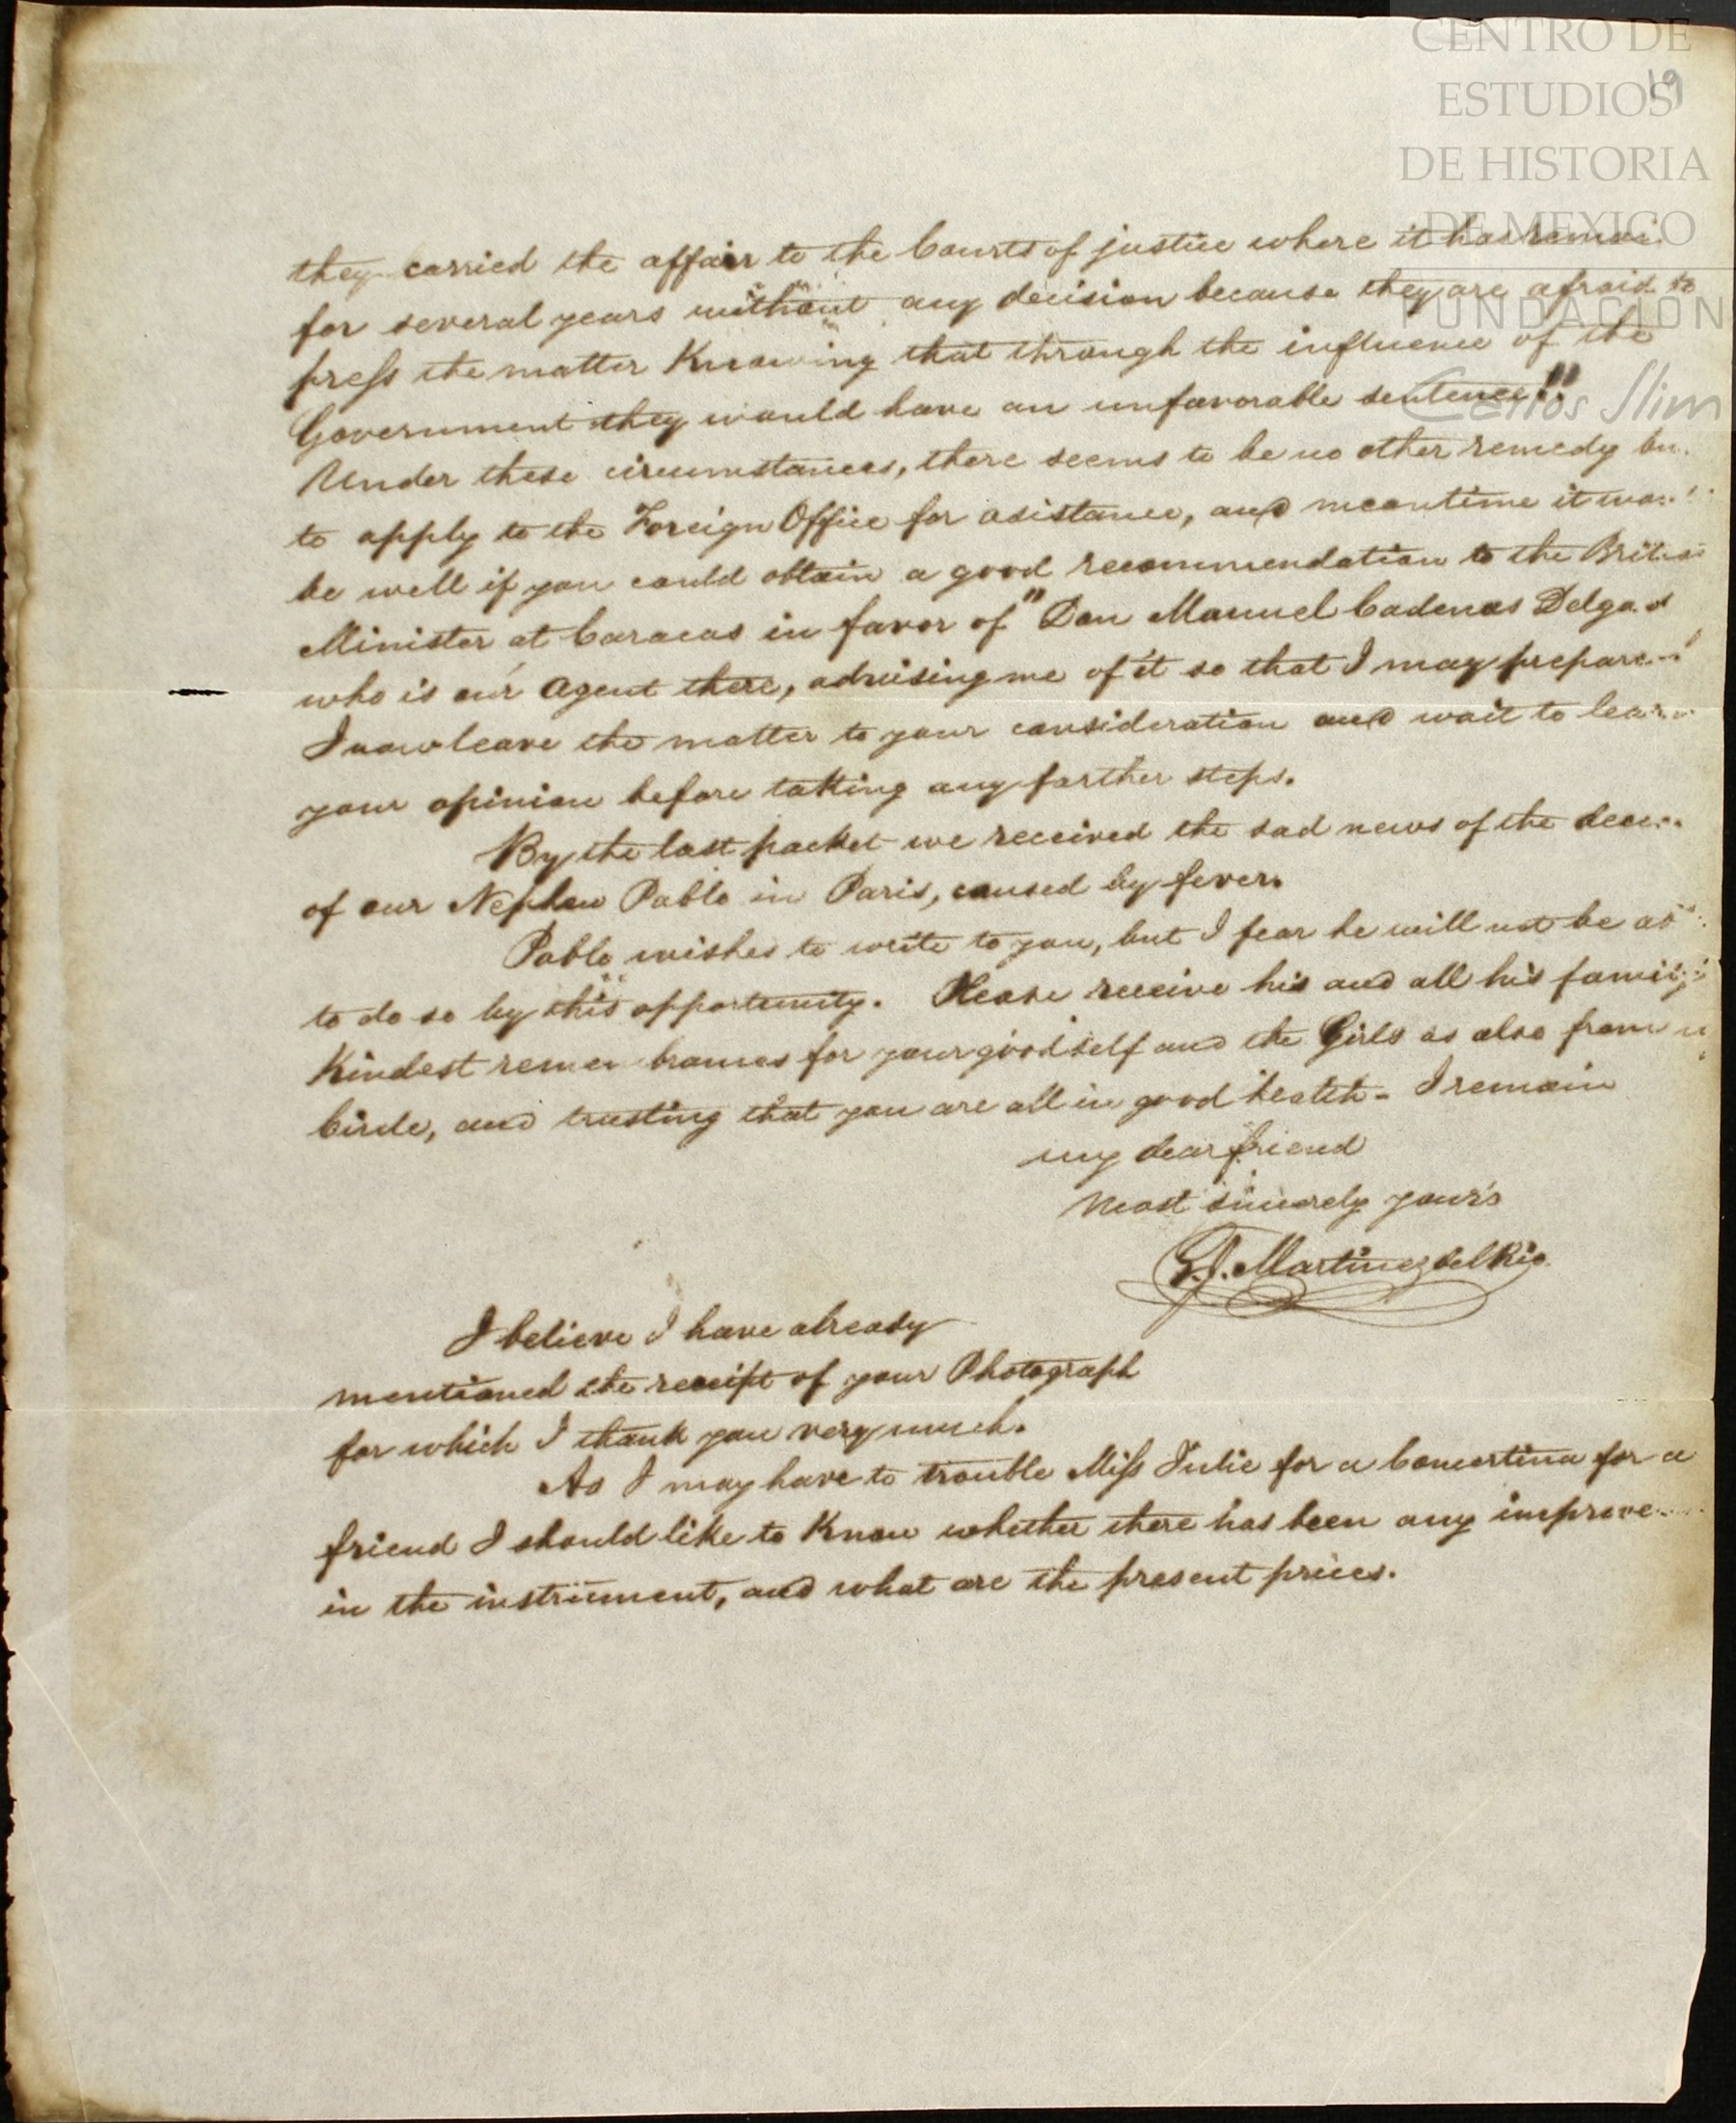 CENTRO DE
ESTUDIOS
DE HISTORIA
DE MEXICO
FUNDACIÓN
Carlos Slim
19
they carried the affair to the Courts of justice where it has remai
for several years without any decision because they are afraid to
press the matter Knowing that through the influence of the
Government they would have an unfavorable sentence!"
Under these circumstances, there seems to be no other remedy bu
to apply to the Foreign Office for asistance, and meantime it wou
be well if you could obtain a good recommendation to the Britis
Minister at Caracas in favor of "Don Manuel Cadenas Delgad
who is our Agent there, advising me of it so that I may prepare
I now leave the matter to your consideration and wait to lear
your opinion before taking any farther steps.
By the last packet we received the sad news of the dece
of our Nephew Pablo in Paris, caused by fever.
Pablo wishes to write to you, but I fear he will not be ab
to do so by this opportunity. Please receive his and all his family
Kindest remembrances for your good self and the Girls as also from
Circle, and trusting that you are all in good health - I remain
my dear friend
most sincerely yours
G. J. Martinez del Rio
I believe I have already
mentioned the receipt of your Photograph
for which I thank you very much.
As I may have to trouble Miss Julie for a Concertina for a
friend I should like to Know whether there has been any improve
in the instrument, and what are the present prices.